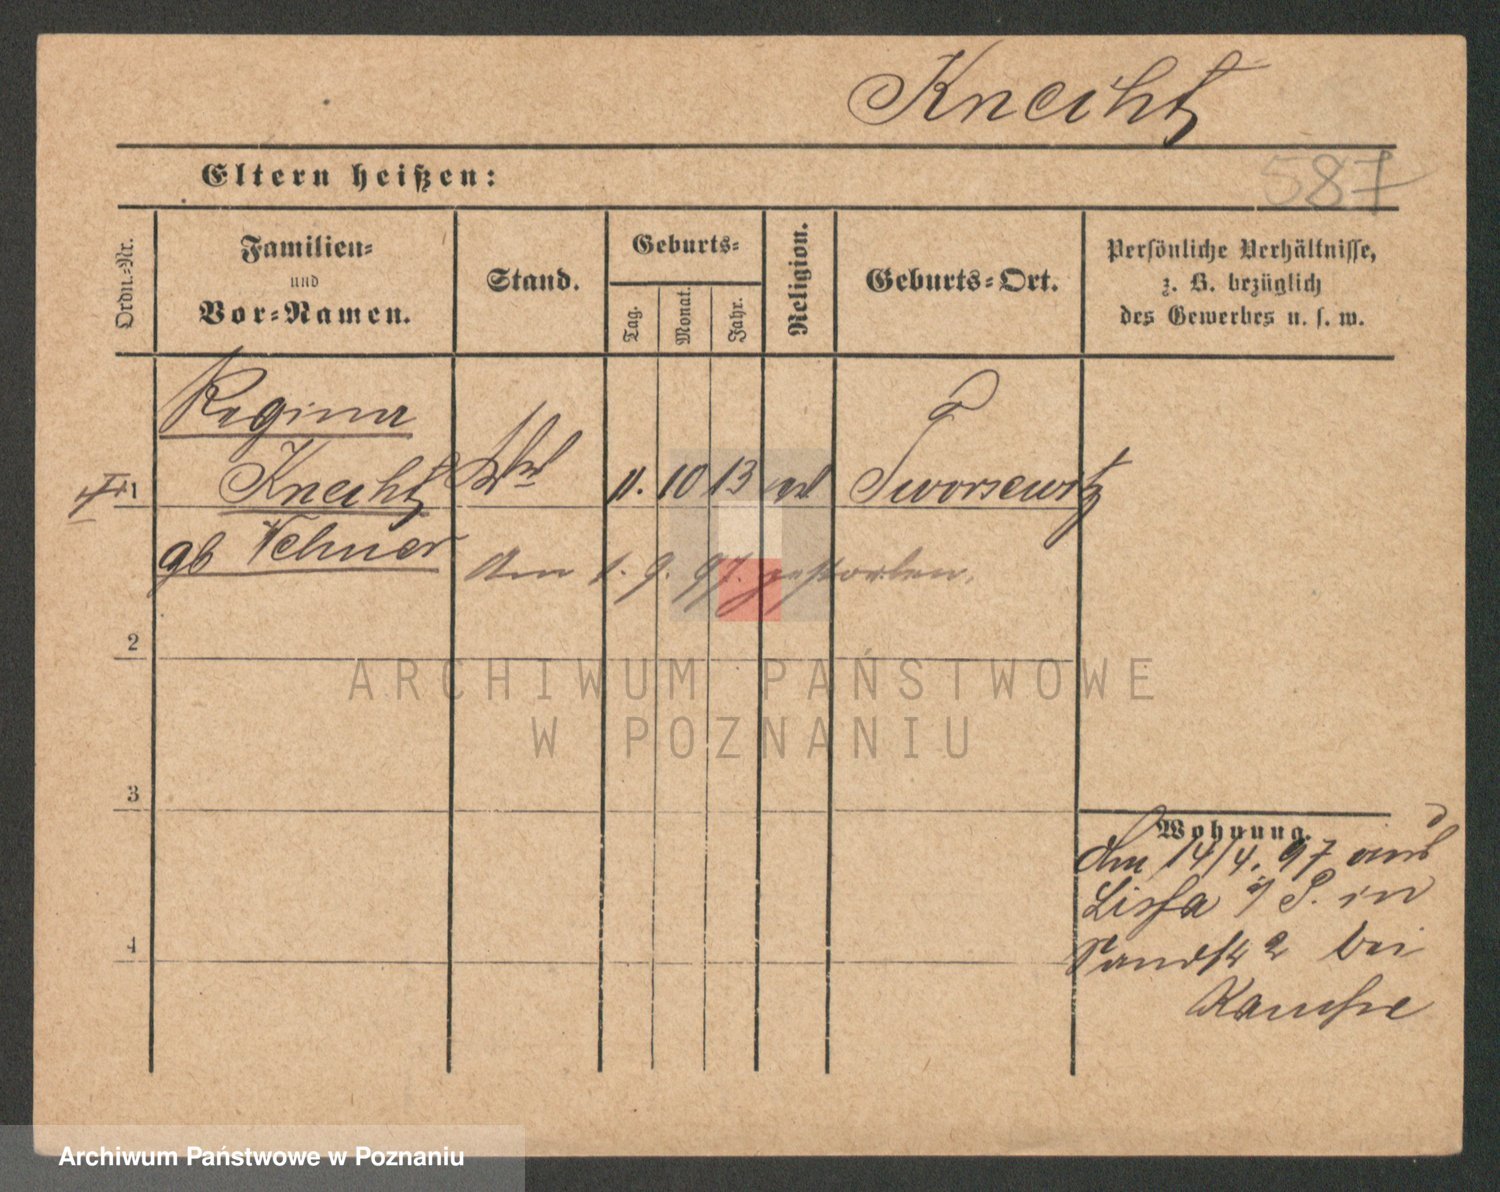 Kneiht
587
Eltern heißen:
Ordn.-Nr.
Familien-
und
Vor-Namen.
Stand.
Geburts-
Tag.
Monat.
Jahr.
Religion.
Geburts-Ort.
Persönliche Verhältnisse,
z. B. bezüglich
des Gewerbes u. s. w.
Regina
1 Kneiht 11. 10 13
gb
Am 1. 9. 97. gestorben.
2
ARCHIWUM PAŃSTWOWE
W POZNANIU
3
Wohnung.
Am 14/4. 97 aus
Lissa i/P. in
Sandstr 2 bei
4
Archiwum Państwowe w Poznaniu